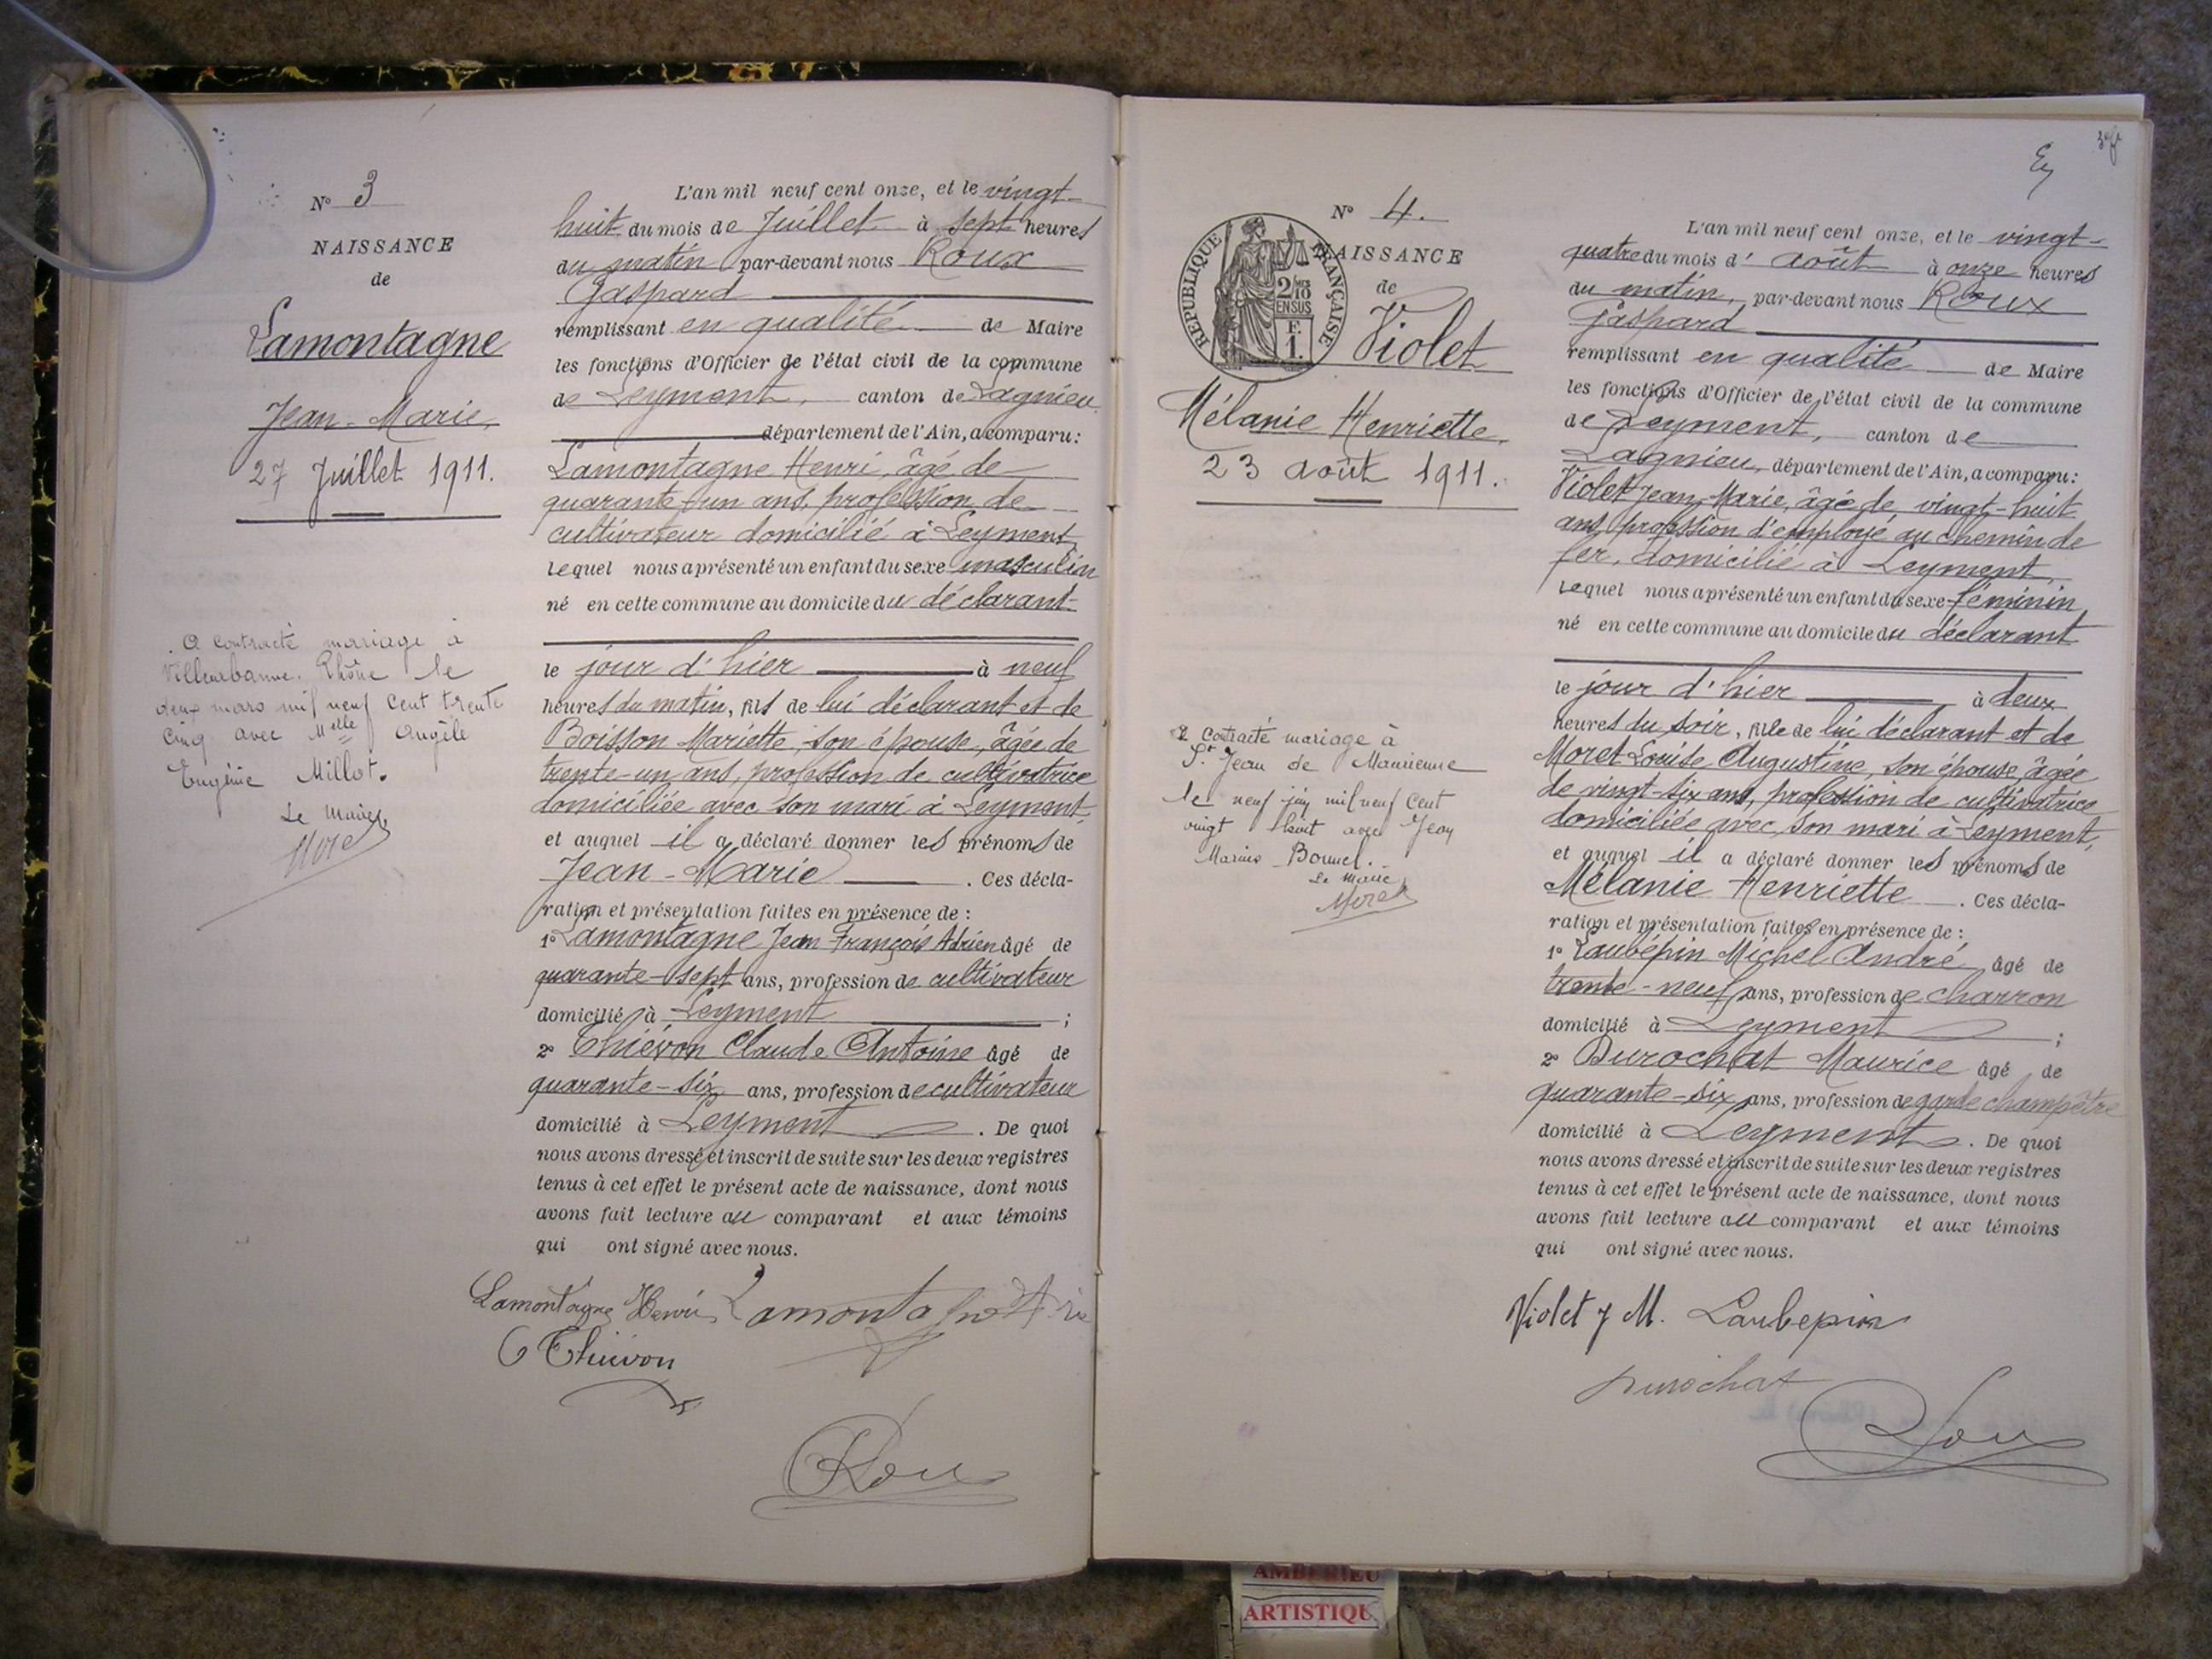 N° 3
NAISSANCE
de
Lamontagne
Jean-Marie,
27 Juillet 1911.
A contracté mariage à
Villeurbanne, Rhône le
deux mars mil neuf cent trente
cinq avec Melle Angèle
Eugénie Millot.
Le Maire,
Morel
L'an mil neuf cent onze, et le vingt-
huit du mois de Juillet à sept heures
du matin par-devant nous Roux
Gaspard
remplissant en qualité de Maire
les fonctions d'Officier de l'état civil de la commune
de Leyment, canton de Lagnieu,
département de l'Ain, a comparu:
Lamontagne Henri, âgé de
quarante-un ans, profession de
cultivateur domicilié à Leyment,
lequel nous a présenté un enfant du sexe masculin
né en cette commune au domicile du déclarant
le jour d'hier à neuf
heures du matin, fils de lui déclarant et de
Boisson Mariette, son épouse, âgée de
trente-un ans, profession de cultivatrice
domiciliée avec son mari à Leyment,
et auquel il a déclaré donner les prénoms de
Jean-Marie. Ces décla-
ration et présentation faites en présence de :
1° Lamontagne Jean François Adrien âgé de
quarante-sept ans, profession de cultivateur
domicilié à Leyment ;
2° Thiévon Claude Antoine âgé de
quarante-six ans, profession de cultivateur
domicilié à Leyment. De quoi
nous avons dressé et inscrit de suite sur les deux registres
tenus à cet effet le présent acte de naissance, dont nous
avons fait lecture au comparant et aux témoins
qui ont signé avec nous.
Lamontagne Henri Lamontagne
C Thiévon
Roux
N° 4.
REPUBLIQUE FRANÇAISE
2/10
EN SUS
F.
1.
NAISSANCE
de
Violet
Mélanie Henriette,
23 août 1911.
A contracté mariage à
St Jean de Maurienne
le neuf juin mil neuf cent
vingt huit avec Jean
Marius Bonnel.
Le Maire,
Morel
L'an mil neuf cent onze, et le vingt-
quatre du mois d'août à onze heures
du matin, par-devant nous Roux
Gaspard
remplissant en qualité de Maire
les fonctions d'Officier de l'état civil de la commune
de Leyment, canton de
Lagnieu, département de l'Ain, a comparu:
Violet Jean Marie, âgé de vingt-huit
ans, profession d'employé au chemin de
fer, domicilié à Leyment,
lequel nous a présenté un enfant du sexe féminin
né en cette commune au domicile du déclarant
le jour d'hier à deux
heures du soir, fille de lui déclarant et de
Moret Louise Augustine, son épouse, âgée
de vingt-six ans, profession de cultivatrice
domiciliée avec son mari à Leyment,
et auquel il a déclaré donner les prénoms de
Mélanie Henriette. Ces décla-
ration et présentation faites en présence de :
1° Laubépin Michel André âgé de
trente-neuf ans, profession de charron
domicilié à Leyment ;
2° Durochat Maurice âgé de
quarante-six ans, profession de garde champêtre
domicilié à Leyment. De quoi
nous avons dressé et inscrit de suite sur les deux registres
tenus à cet effet le présent acte de naissance, dont nous
avons fait lecture au comparant et aux témoins
qui ont signé avec nous.
Violet J M. Laubepin
Durochat
Roux
AMBERIEU
ARTISTIQU